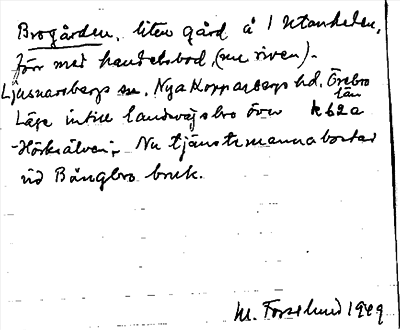 Brogården, liten gård å Utanheden,
förr med handelsbod, (nu riven).
Ljusnarsbergs sn. Nya Kopparbergs hd. Örebro
län
Läge intill landsvägsbro över k62a
Hörksälven. Nu tjänstemannabostad
vid Bångbro bruk.
M. Forslund 1949